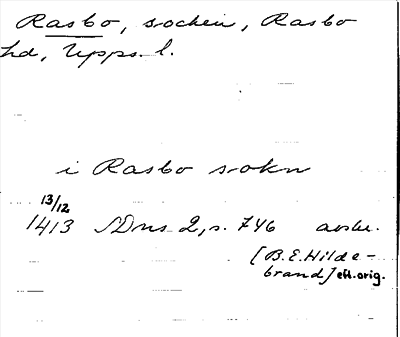 Rasbo, socken, Rasbo
hd, Upps. l.
i Rasbo sokn
13/12
1413 SDns 2, s. 746 avskr.
[B.E. Hilde-
brand] eft. orig.